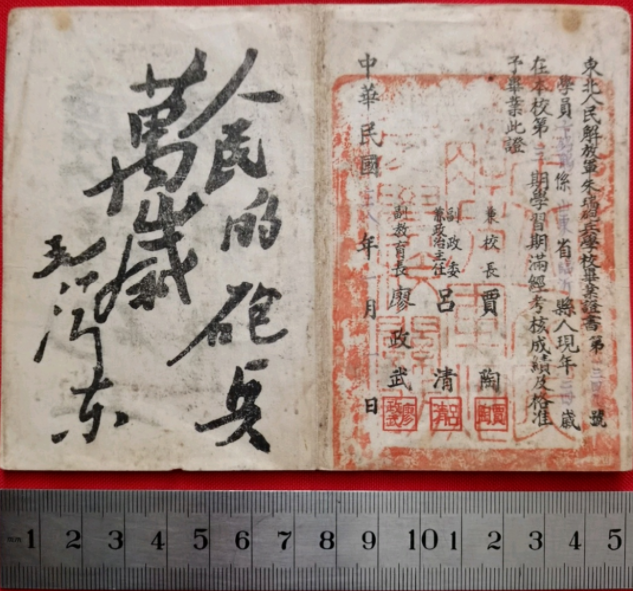 東北人民解放軍朱瑞砲兵學校畢業證書 第 號
學員 係山東省 縣人現年 歲
在本校第 期學習期滿經考核成績及格准
予畢業此證
兼校長 賈陶
副政委
兼政治主任 呂清
副教育長 廖政武
中華民國 年 月 日
人民的砲兵
萬歲
毛澤東
cm 1 2 3 4 5 6 7 8 9 10 1 2 3 4 5